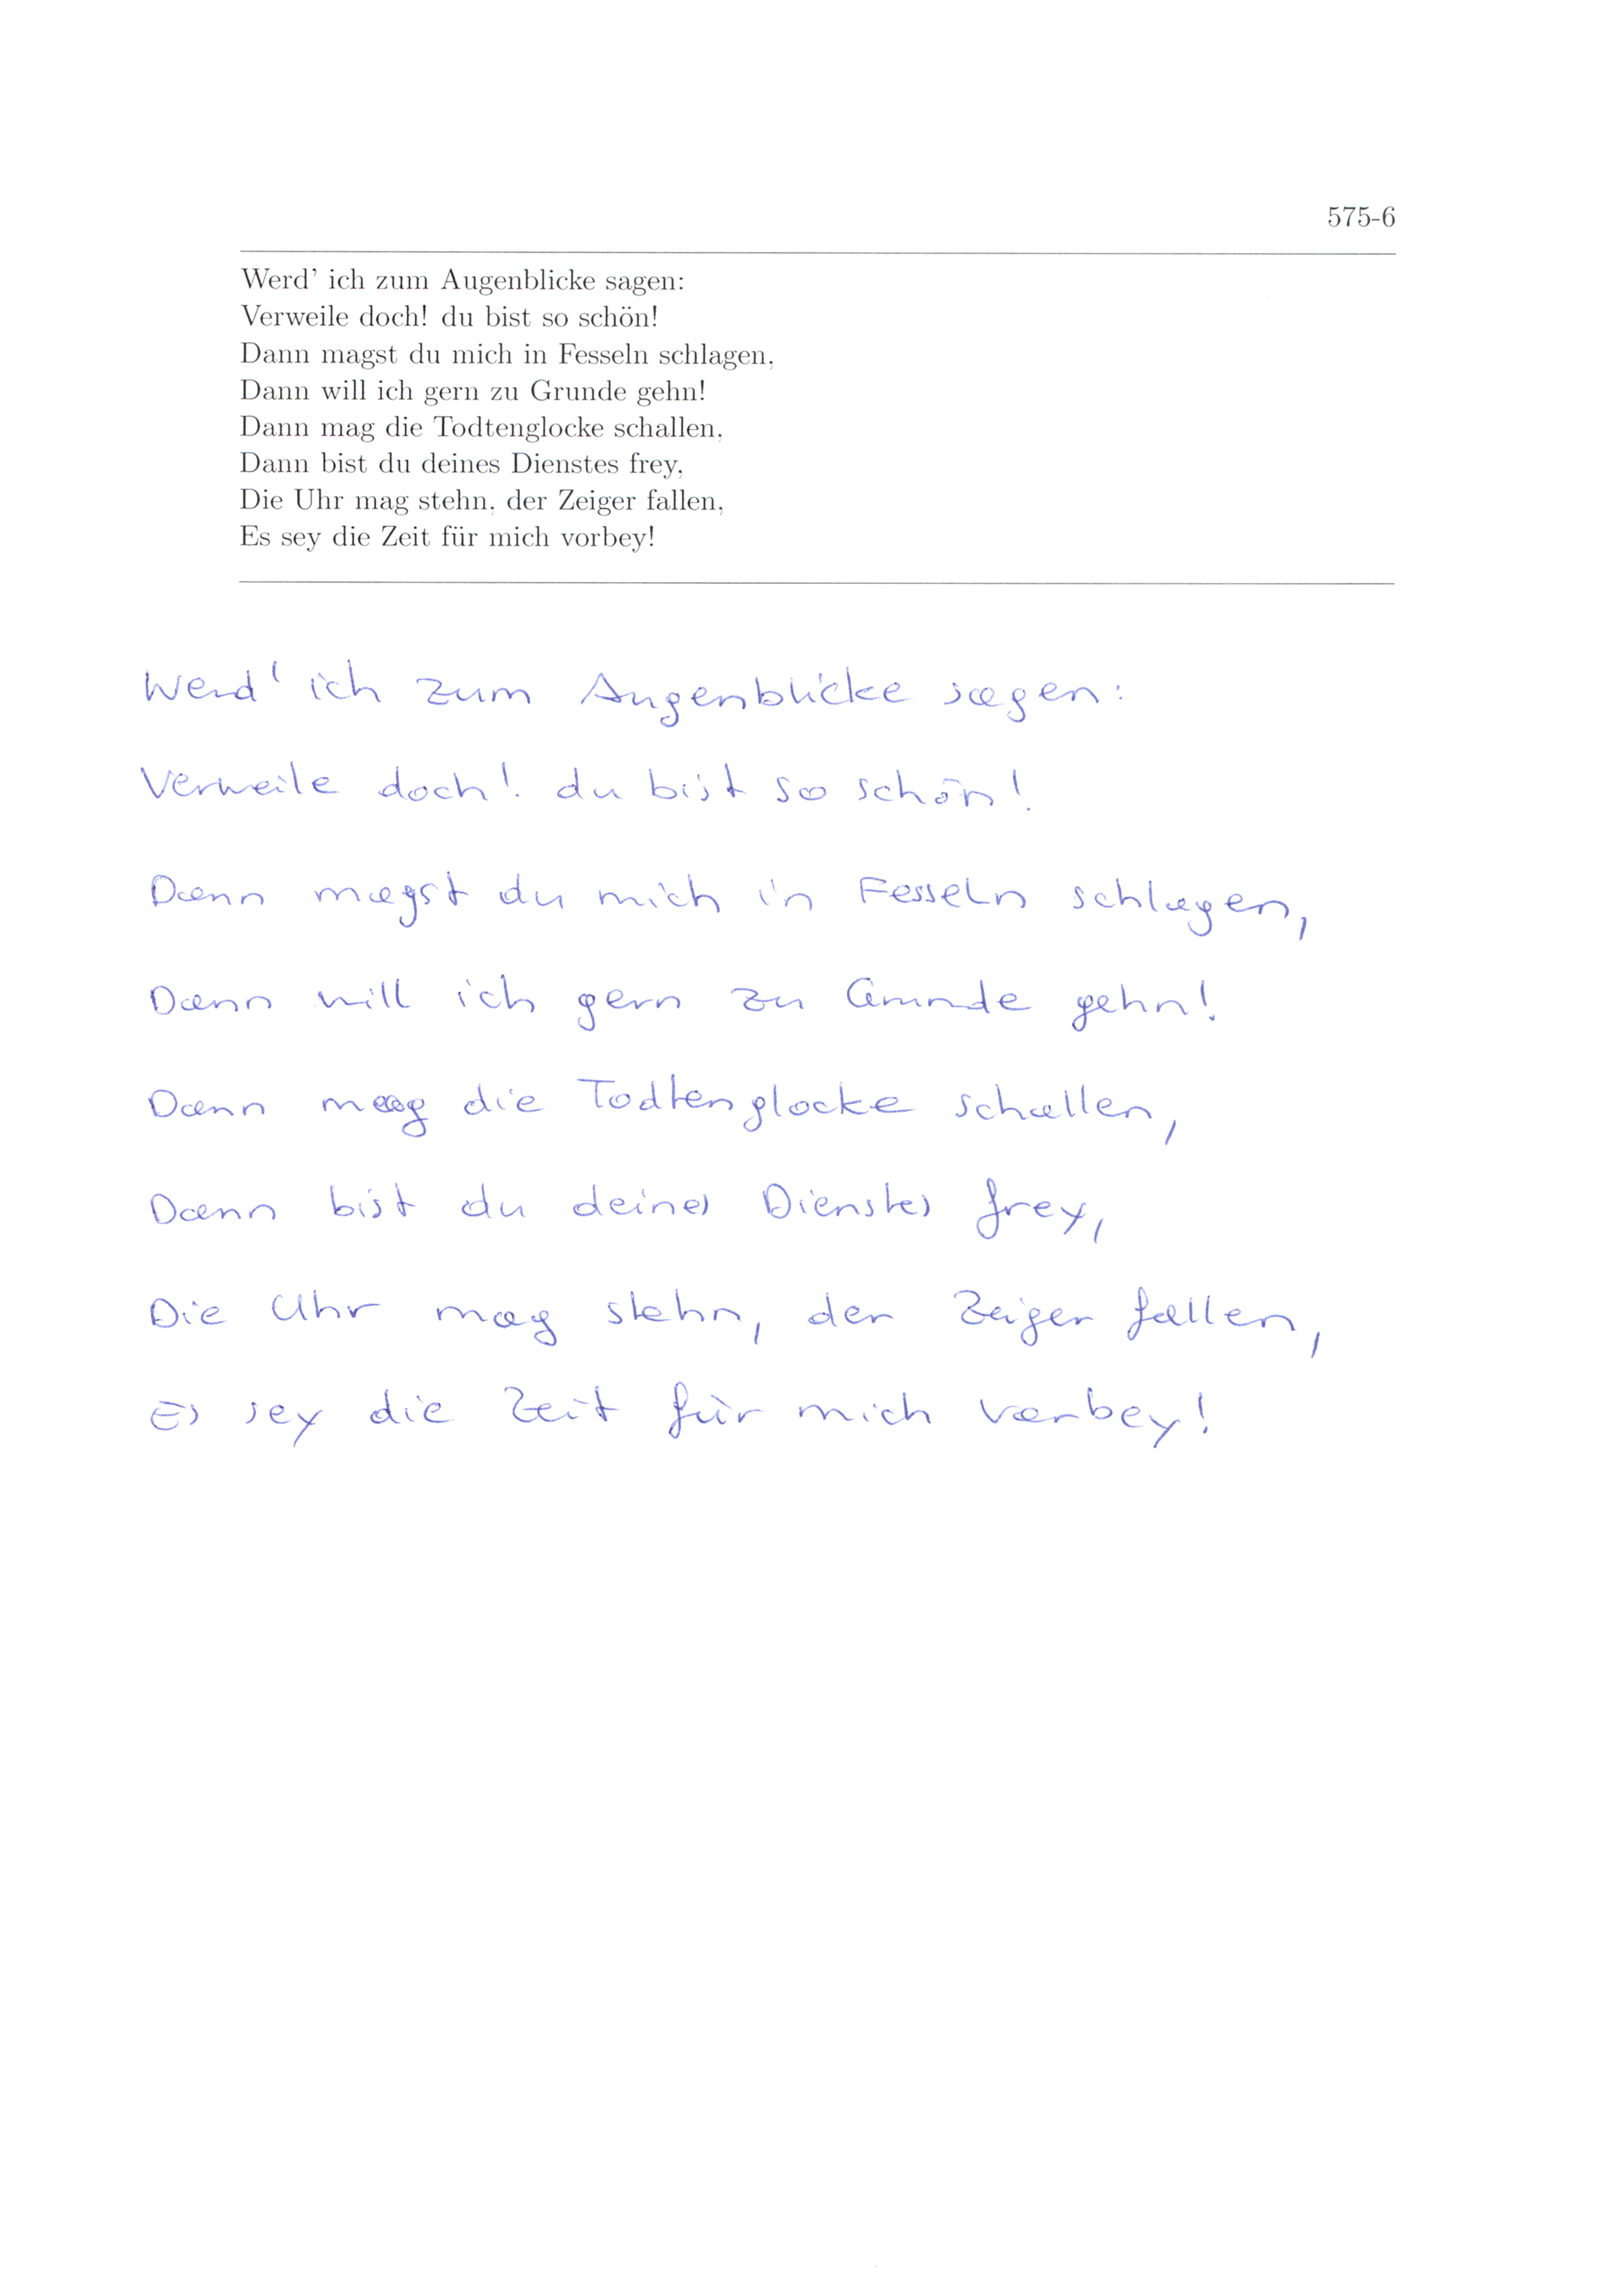 575-6
Werd' ich zum Augenblicke sagen:
Verweile doch! du bist so schön!
Dann magst du mich in Fesseln schlagen,
Dann will ich gern zu Grunde gehn!
Dann mag die Todtenglocke schallen,
Dann bist du deines Dienstes frey,
Die Uhr mag stehn, der Zeiger fallen,
Es sey die Zeit für mich vorbey!
Werd' ich zum Augenblicke sagen:
Verweile doch! du bist so schön!
Dann magst du mich in Fesseln schlagen,
Dann will ich gern zu Grunde gehn!
Dann mag die Todtenglocke schallen,
Dann bist du deines Dienstes frey,
Die Uhr mag stehn, der Zeiger fallen,
Es sey die Zeit für mich vorbey!